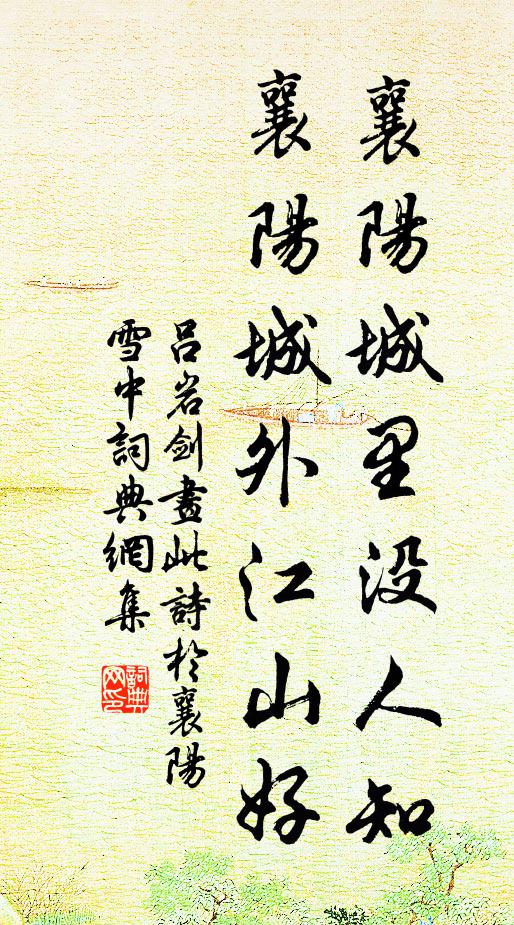 襄陽城里没人知
襄陽城外江山好
呂岩劍畫此詩於襄陽
雪中詞典網集
詞典
网印